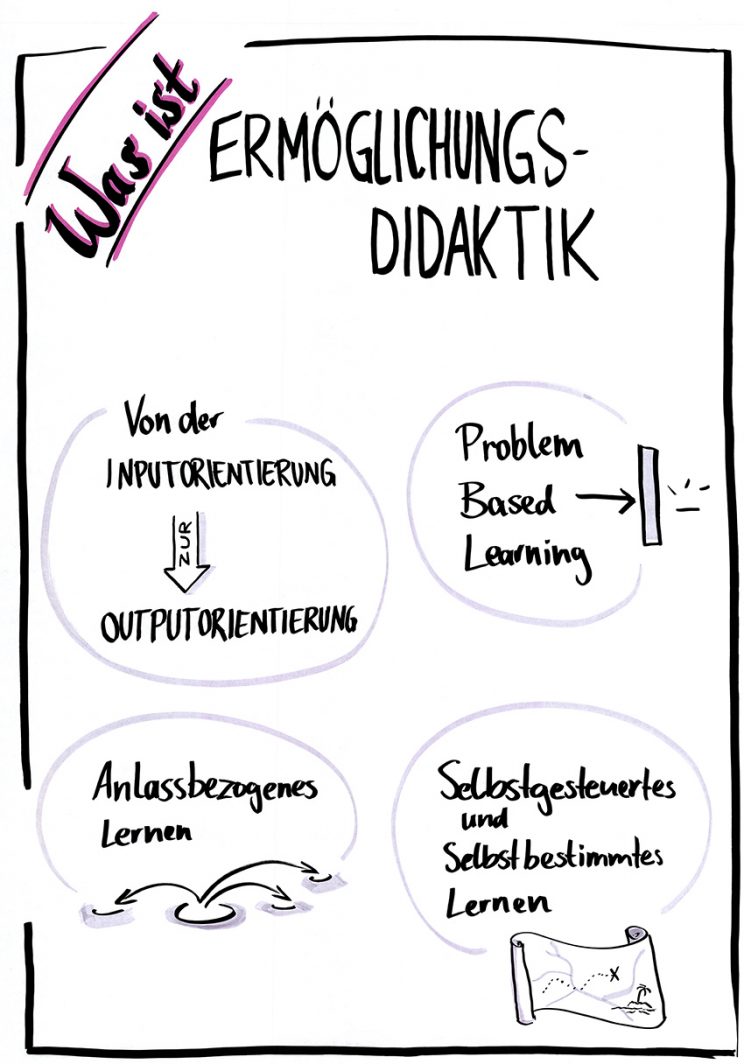 Was ist
ERMÖGLICHUNGS-
DIDAKTIK
Von der
INPUTORIENTIERUNG
ZUR
OUTPUTORIENTIERUNG
Problem
Based
Learning
Anlassbezogenes
Lernen
Selbstgesteuertes
und
Selbstbestimmtes
Lernen